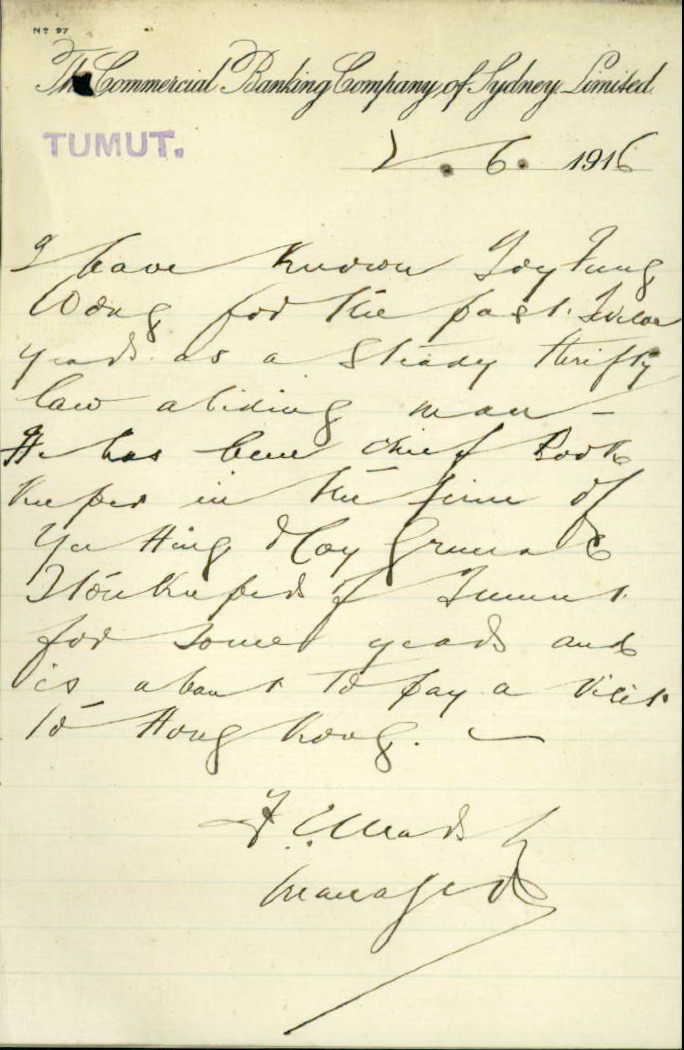 No 97
The Commercial Banking Company of Sydney Limited
TUMUT.
2 . 6 . 1916
I have known Foy Fung
Wong for the past
years as a steady thrifty
law abiding man -
He has been chief Book
keeper in the firm of
Yee Hing & Coy
Storekeepers of Tumut
for some years and
is about to pay a visit
to Hong Kong. -
manager